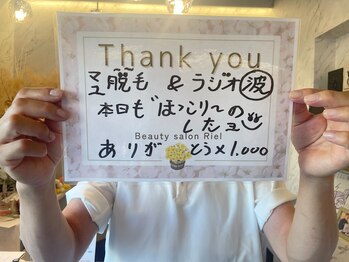 Thank you
マユ脱毛 & ラジオ波
本日も〝ほっこり〜の
したヨ
Beauty salon Riel
ありがとう×1.000